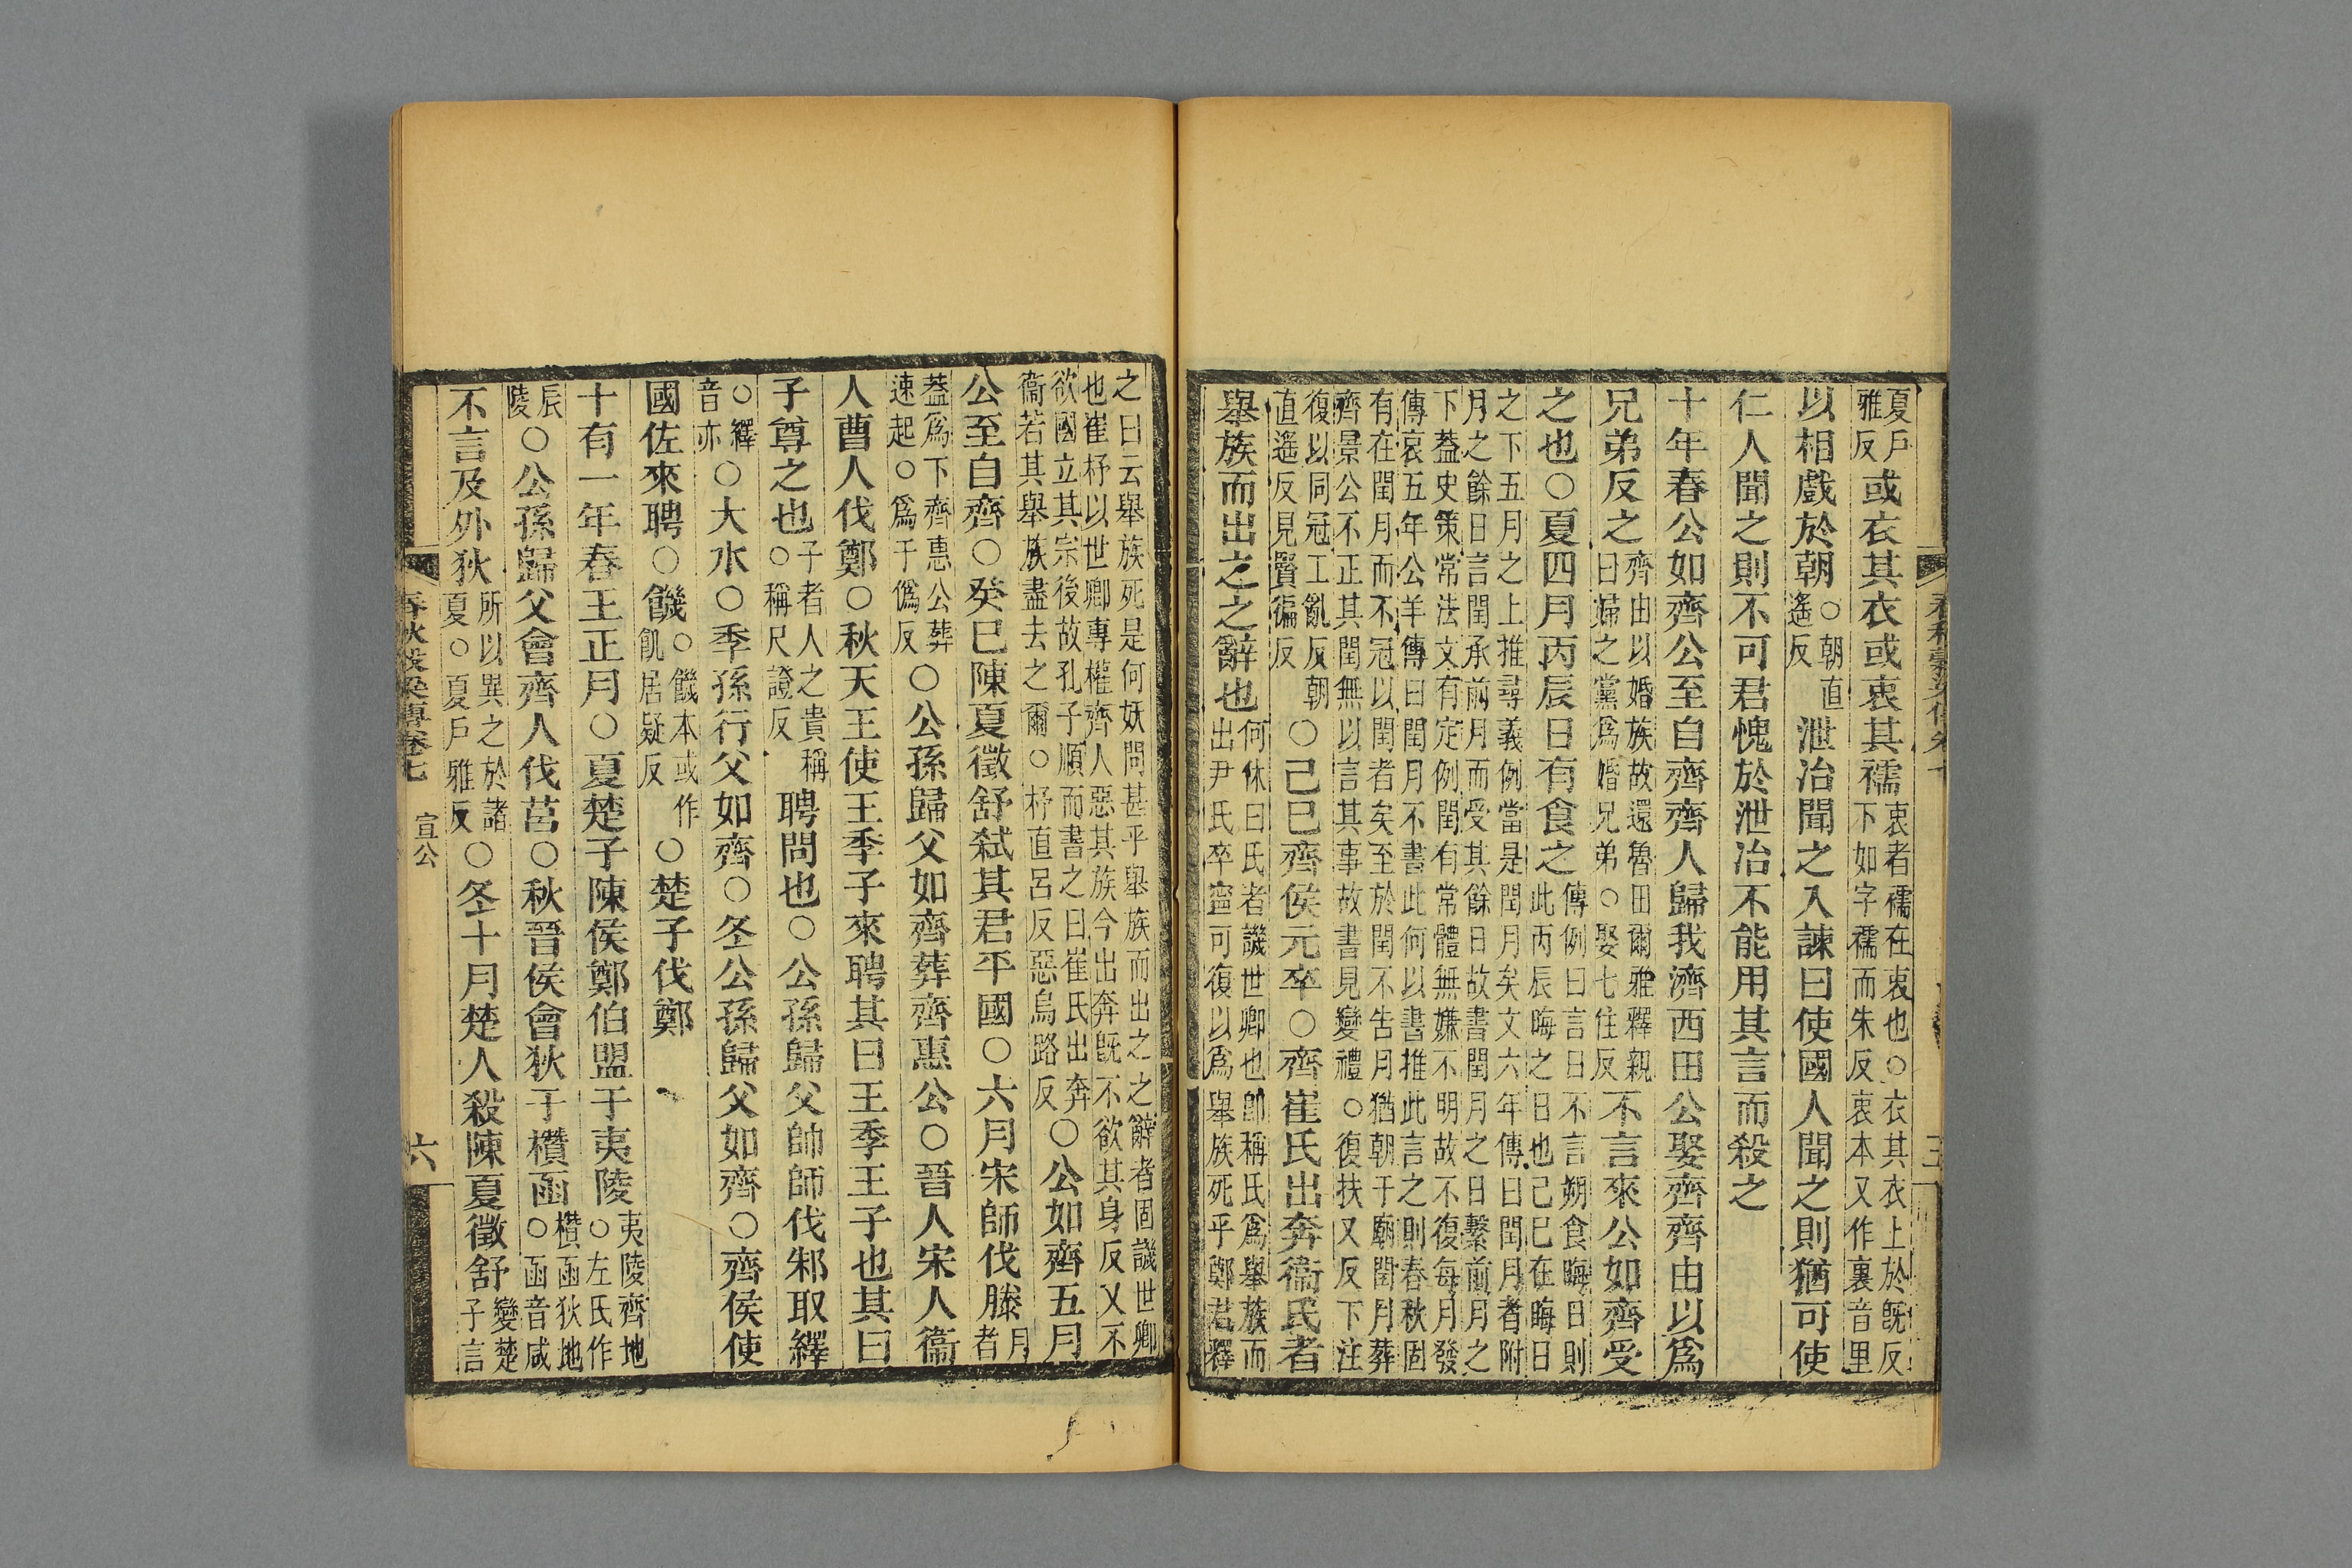 夏戶雅反或衣其衣或衷其襦衷者襦在衷也○衣其衣上於旣反下如字襦而朱反衷本又作裏音里
以相戲於朝○朝直遙反泄冶聞之入諫曰使國人聞之則猶可使
仁人聞之則不可君愧於泄冶不能用其言而殺之
十年春公如齊公至自齊齊人歸我濟西田公娶齊齊由以爲
兄弟反之齊由以婚族故還魯田爾雅釋親曰婦之黨爲婚兄弟○娶七住反不言來公如齊受
之也○夏四月丙辰日有食之傳例曰言日不言朔食晦日則此丙辰晦之日也己巳在晦日
之下五月之上推尋義例當是閏月矣文六年傳曰閏月者附
月之餘日言閏承前月而受其餘日故書閏月之日繫前月之
下蓋史策常法文有定例閏有常體無嫌不明故不復每月發
傳哀五年公羊傳曰閏月不書此何以書推此言之則春秋固
有在閏月而不冠以閏者矣至於閏不告月猶朝于廟閏月葬
齊景公不正其閏無以言其事故書見變禮○復扶又反下注
復以同冠工亂反朝直遙反見賢徧反○己巳齊侯元卒○齊崔氏出奔衞氏者
舉族而出之之辭也何休曰氏者譏世卿也卽稱氏爲舉族而出尹氏卒寧可復以爲舉族死乎鄭君釋
之曰云舉族死是何妖問甚乎舉族而出之之辭者固譏世卿
也崔杼以世卿專權齊人惡其族今出奔旣不欲其身反又不
欲國立其宗後故孔子順而書之曰崔氏出奔衞若其舉族盡去之爾○杼直呂反惡烏路反○公如齊五月
公至自齊○癸巳陳夏徵舒弑其君平國○六月宋師伐滕月者
蓋爲下齊惠公葬速起○爲于僞反○公孫歸父如齊葬齊惠公○晉人宋人衞
人曹人伐鄭○秋天王使王季子來聘其曰王季王子也其曰
子尊之也子者人之貴稱○稱尺證反聘問也○公孫歸父帥師伐邾取繹
○繹音亦○大水○季孫行父如齊○冬公孫歸父如齊○齊侯使
國佐來聘○饑○饑本或作飢居疑反○楚子伐鄭
十有一年春王正月○夏楚子陳侯鄭伯盟于夷陵夷陵齊地○左氏作
辰陵○公孫歸父會齊人伐莒○秋晉侯會狄于欑函欑函狄地○函音咸
不言及外狄所以異之於諸夏○夏戶雅反○冬十月楚人殺陳夏徵舒變楚子言
春秋穀梁傳卷七 宣公 六